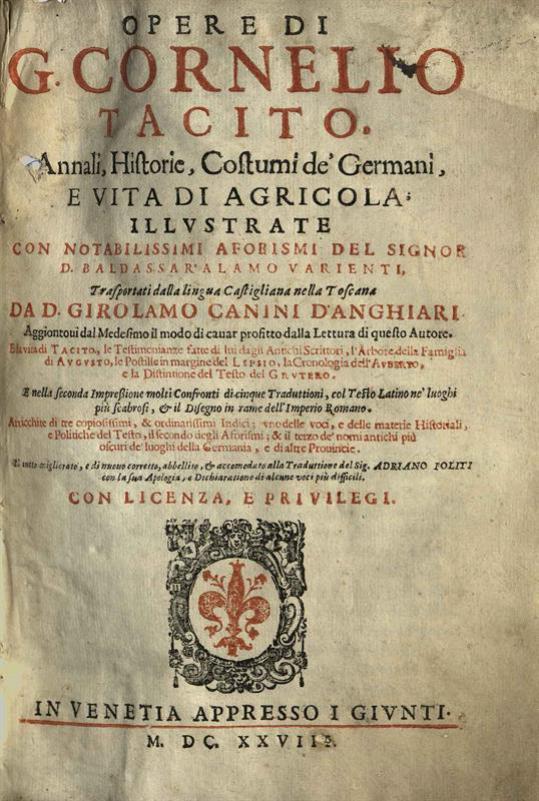 OPERE DI
G. CORNELIO
TACITO.
Annali, Hiſtorie, Coſtumi de' Germani,
E VITA DI AGRICOLA;
ILLVSTRATE
CON NOTABILISSIMI AFORISMI DEL SIGNOR
D. BALDASSAR' ALAMO VARIENTI,
Traſportati dalla lingua Caſtigliana nella Toſcana
DA D. GIROLAMO CANINI D'ANGHIARI.
Aggiontoui dal Medeſimo il modo di cauar profitto dalla Lettura di queſto Autore.
E la vita di TACITO, le Teſtimonianze fatte di lui dagli Antichi Scrittori, l'Arbore della Famiglia
di AVGVSTO, le Poſtille in margine del LIPSIO, la Cronologia dell'AVBERTO,
e la Diſtintione del Teſto del GRVTERO.
E nella ſeconda Impreſſione molti Confronti di cinque Traduttioni, col Teſto Latino ne' luoghi
più ſcabroſi, & il Diſegno in rame dell'Imperio Romano.
Arricchite di tre copioſiſſimi, & ordinatiſſimi Indici; vno delle voci, e delle materie Hiſtoriali,
e Politiche del Teſto, il ſecondo degli Aforiſmi; & il terzo de' nomi antichi più
oſcuri de' luoghi della Germania, e di altre Prouincie.
Il tutto migliorato, e di nuouo corretto, abbellito, & accomodato alla Traduttione del Sig. ADRIANO POLITI
con la ſua Apologia, e Dichiaratione di alcune voci più difficili.
CON LICENZA, E PRIVILEGI.
IN VENETIA APPRESSO I GIVNTI.
M. DC. XXVIII.